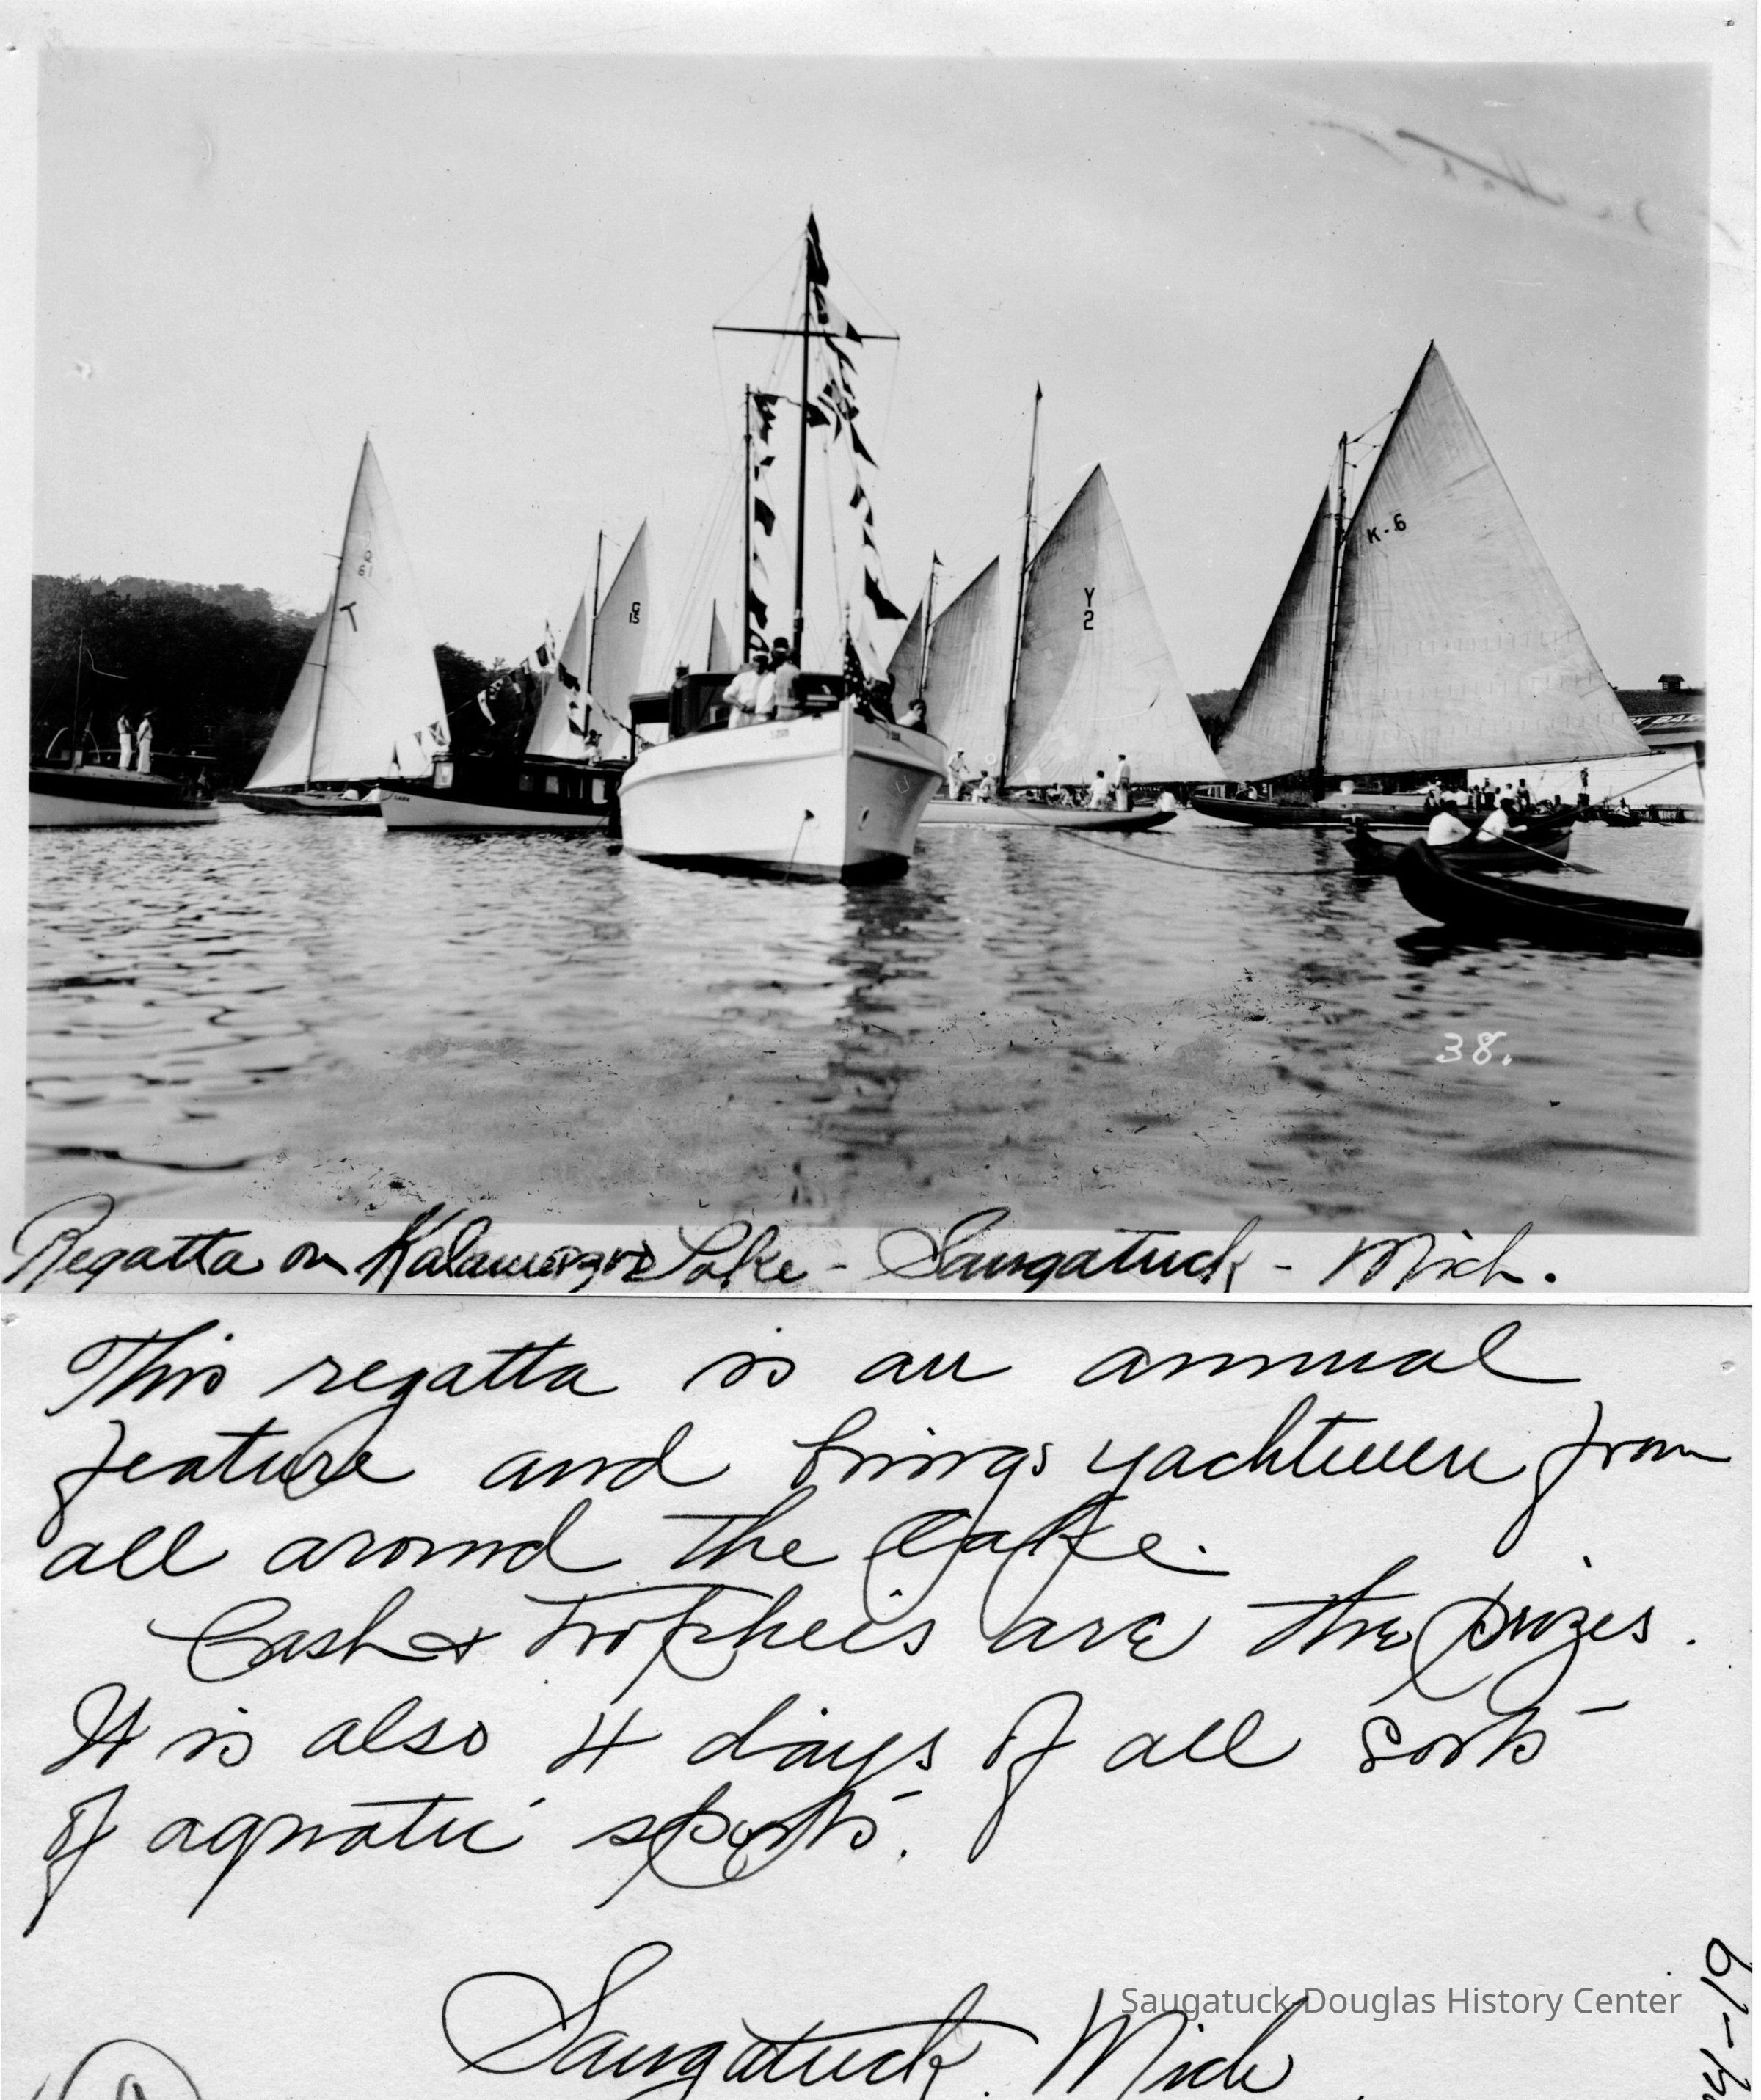 Q
61
T
G
15
Y
2
K-6
38.
Regatta on Kalamazoo Lake - Saugatuck - Mich.
This regatta is an annual
feature and brings yachtmen from
all around the Lake.
Cash & Tropheis are the prizes.
It is also 4 days of all sorts
of aquatic sports.
Saugatuck, Mich.
Saugatuck-Douglas History Center